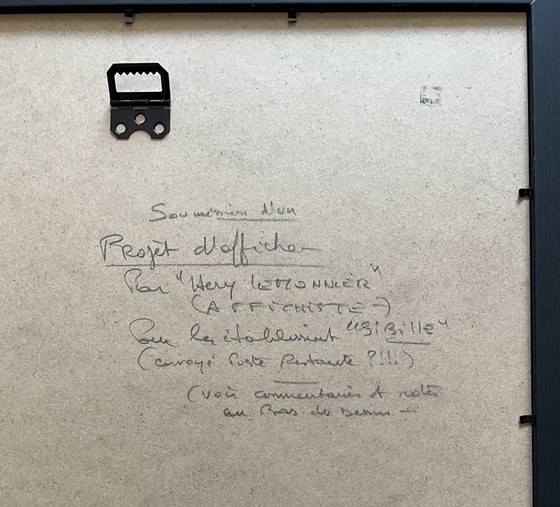 Soumission d'un
Projet d'affiche
Par "Hery LEMONNIER"
(AFFICHISTE)
Pour les établissint "SIBILLE"
(envoyé Poste Restante ?!!!)
(voir commentaires et notes
au Bas du Dessin -